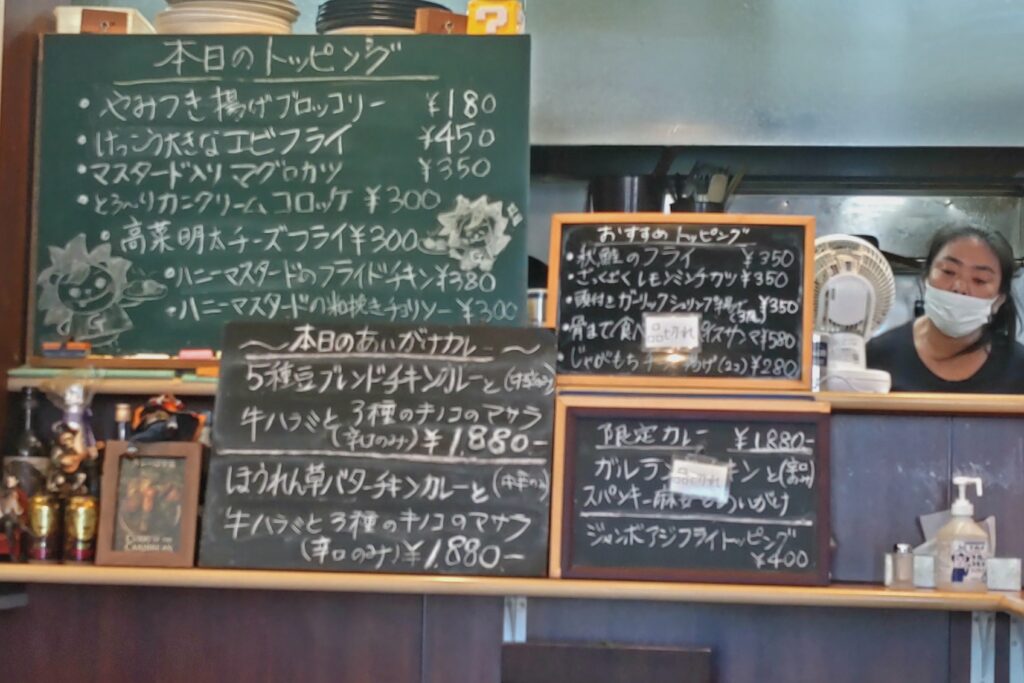 本日のトッピング
・やみつき揚げブロッコリー ¥180
・けっこう大きなエビフライ ¥450
・マスタード入りマグロカツ ¥350
・とろ〜りカニクリームコロッケ ¥300
・高菜明太チーズフライ ¥300
・ハニーマスタードのフライドチキン ¥380
・ハニーマスタードの粗挽きチョリソー ¥300
おすすめトッピング
・秋鮭のフライ ¥350
・ざくざくレモンミンチカツ ¥350
・頭付きガーリックシュリンプ ¥350
・骨まで食べ サンマ ¥580
・じゃがもち チーズ 揚げ(2コ) ¥280
品切れ
〜本日のあいがけカレー〜
5種豆ブレンドチキンカレーと(中辛のみ)
牛ハラミと3種のキノコのマサラ
(辛口のみ) ¥1.880-
ほうれん草バターチキンカレーと(中辛のみ)
牛ハラミと3種のキノコのマサラ
(辛口のみ) ¥1.880-
限定カレー ¥1.880-
ガルラン チキンと(辛口のみ)
品切れ
スパンキー麻 あいがけ
ジャンボアジフライトッピング
¥400